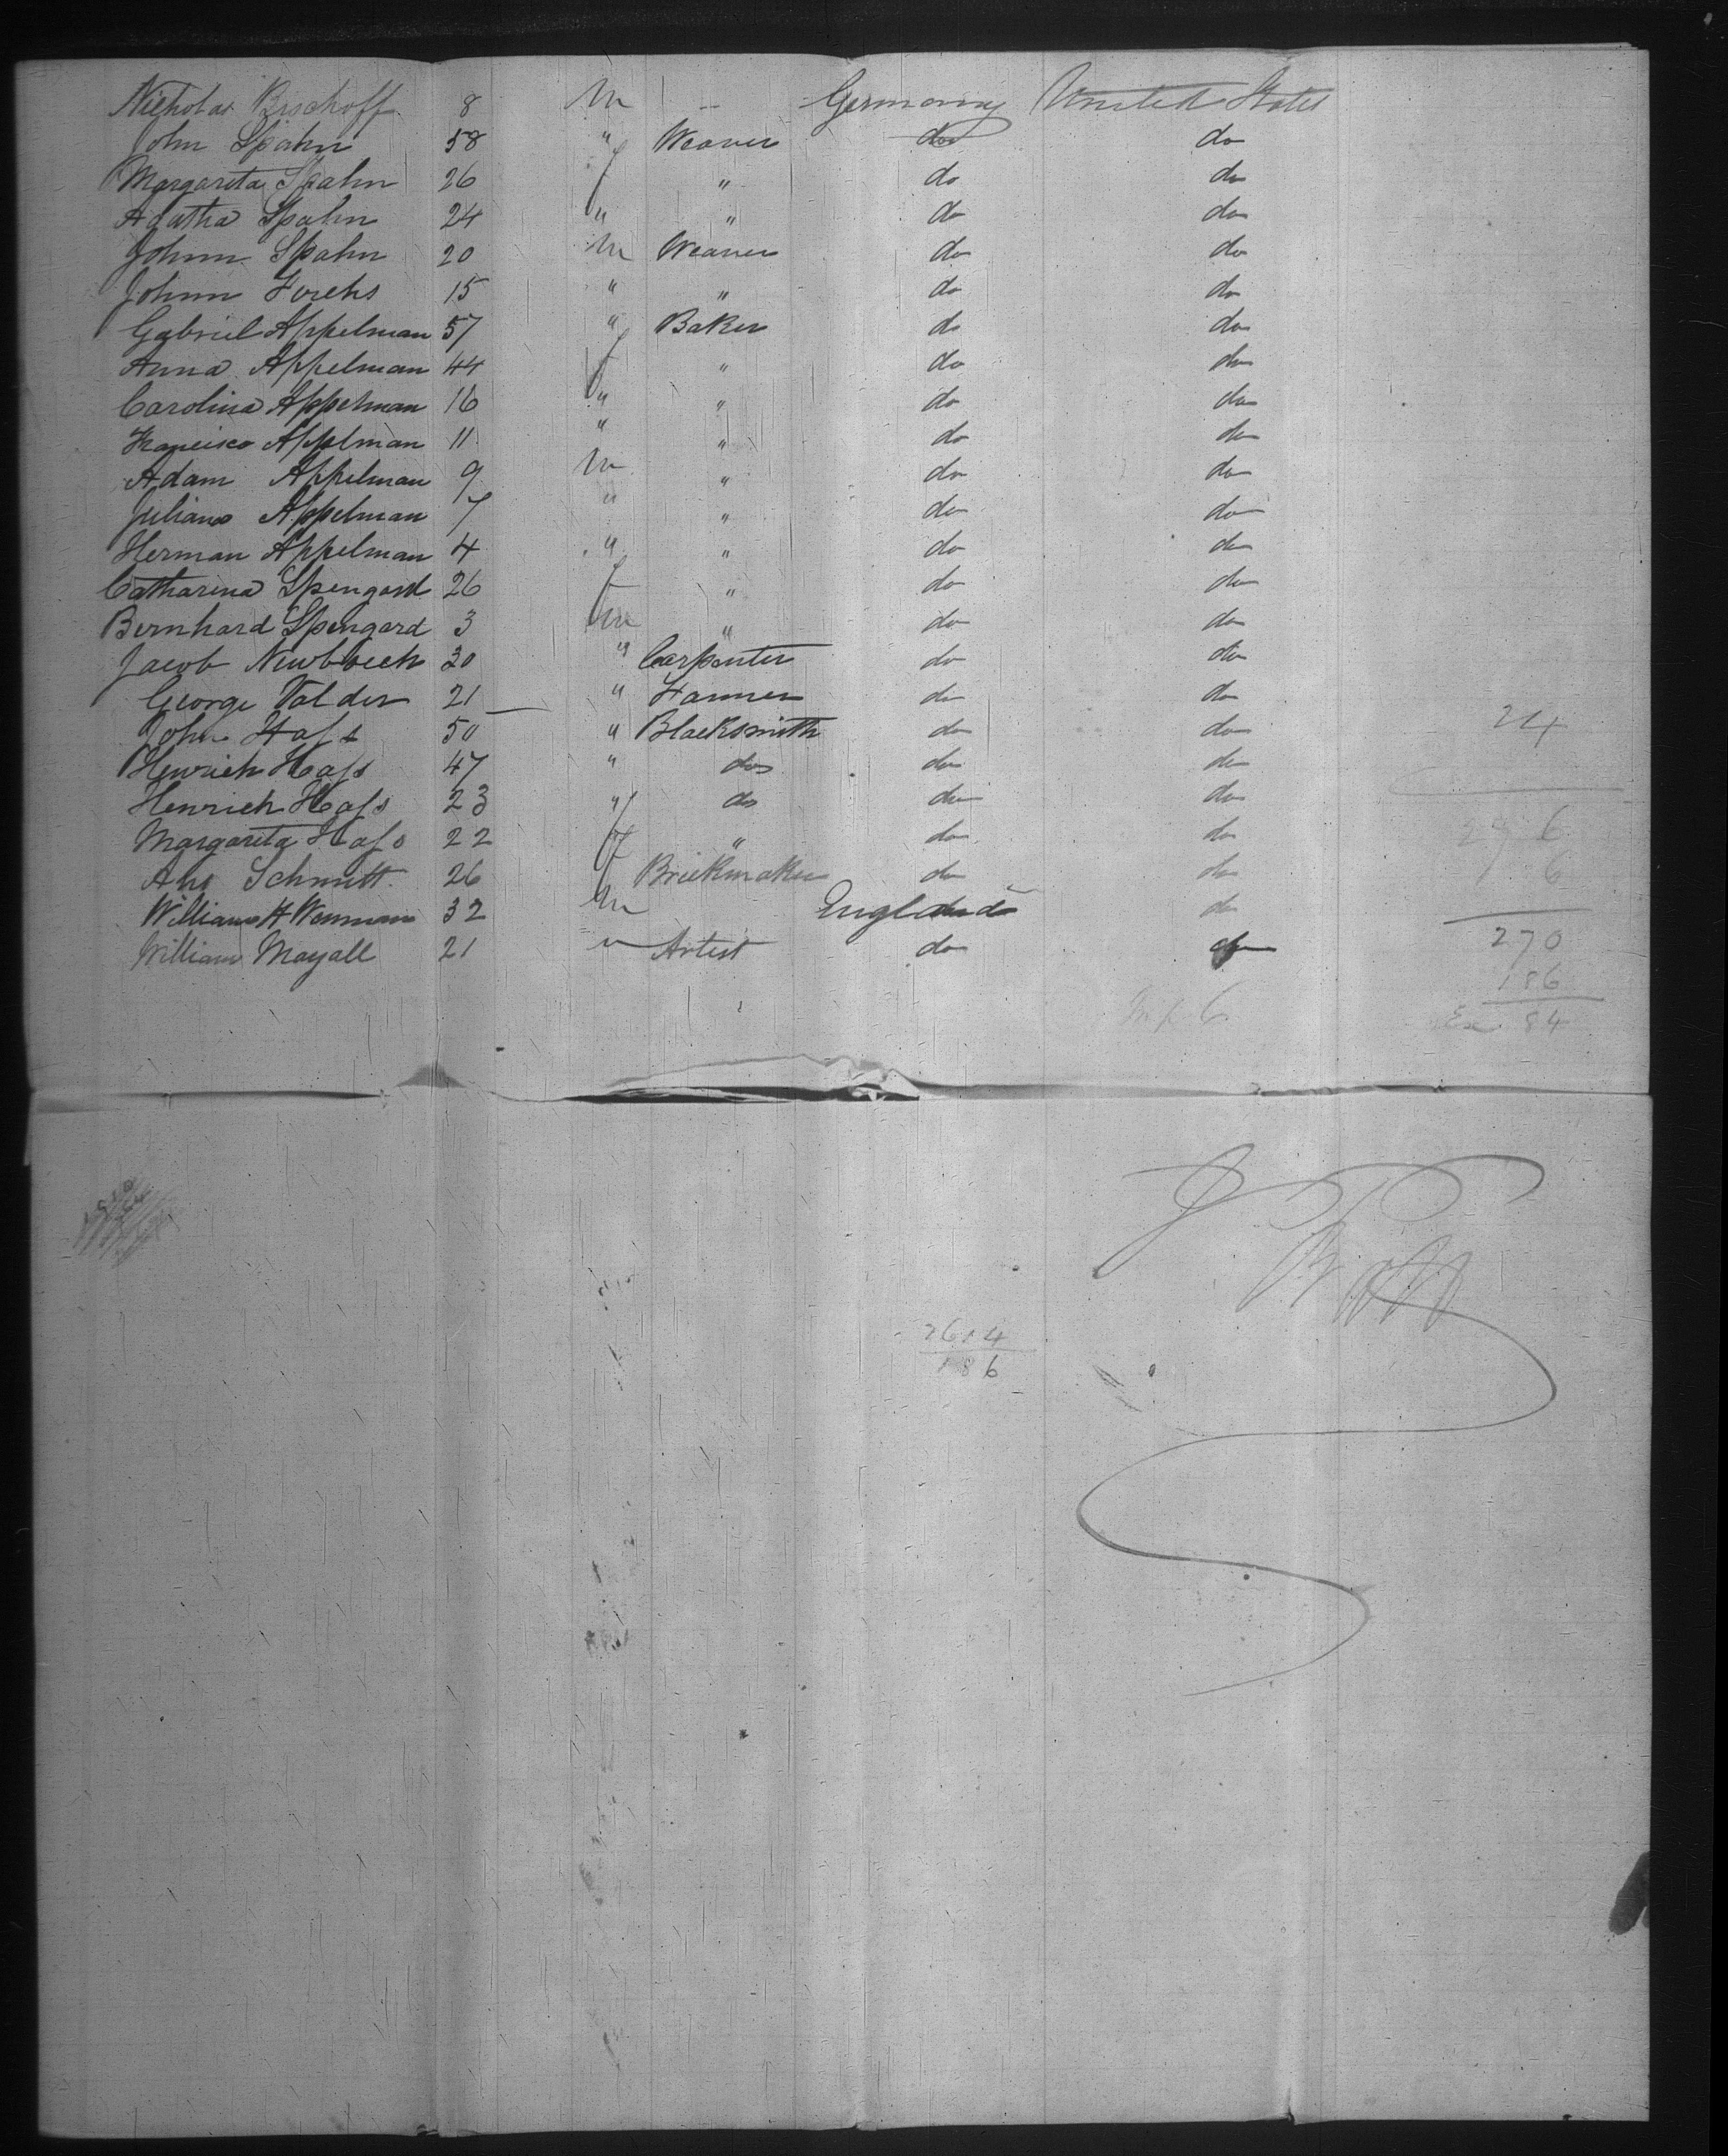 Nicholas Bischoff 8 m -- Germany United States
John Spahn 58 " Weaver do do
Margarita Spahn 26 f " do do
Agatha Spahn 24 " " do do
Johnn Spahn 20 m Weaver do do
Johnn Forchs 15 " " do do
Gabriel Appelman 57 " Baker do do
Anna Appelman 44 f " do do
Carolina Appelman 16 " " do do
Francisco Appelman 11 " " do do
Adam Appelman 9 m " do do
Juliano Appelman 7 " " do do
Herman Appelman 4 " " do do
Catharina Spengard 26 f " do do
Bernhard Spengard 3 m " do do
Jacob 30 " Carpenter do do
George Valder 21 " Farmer do do
John Hafs 50 " Blacksmith do do 24
Henrich Hafs 47 " do do do
Henrich Hafs 23 " do do do
Margarita Hafs 22 f " do do 276
Schmitt 26 f Brickmaker do do 6
William H 32 m England do 270
William Mayall 21 " Artist do do
186
84
2614
186